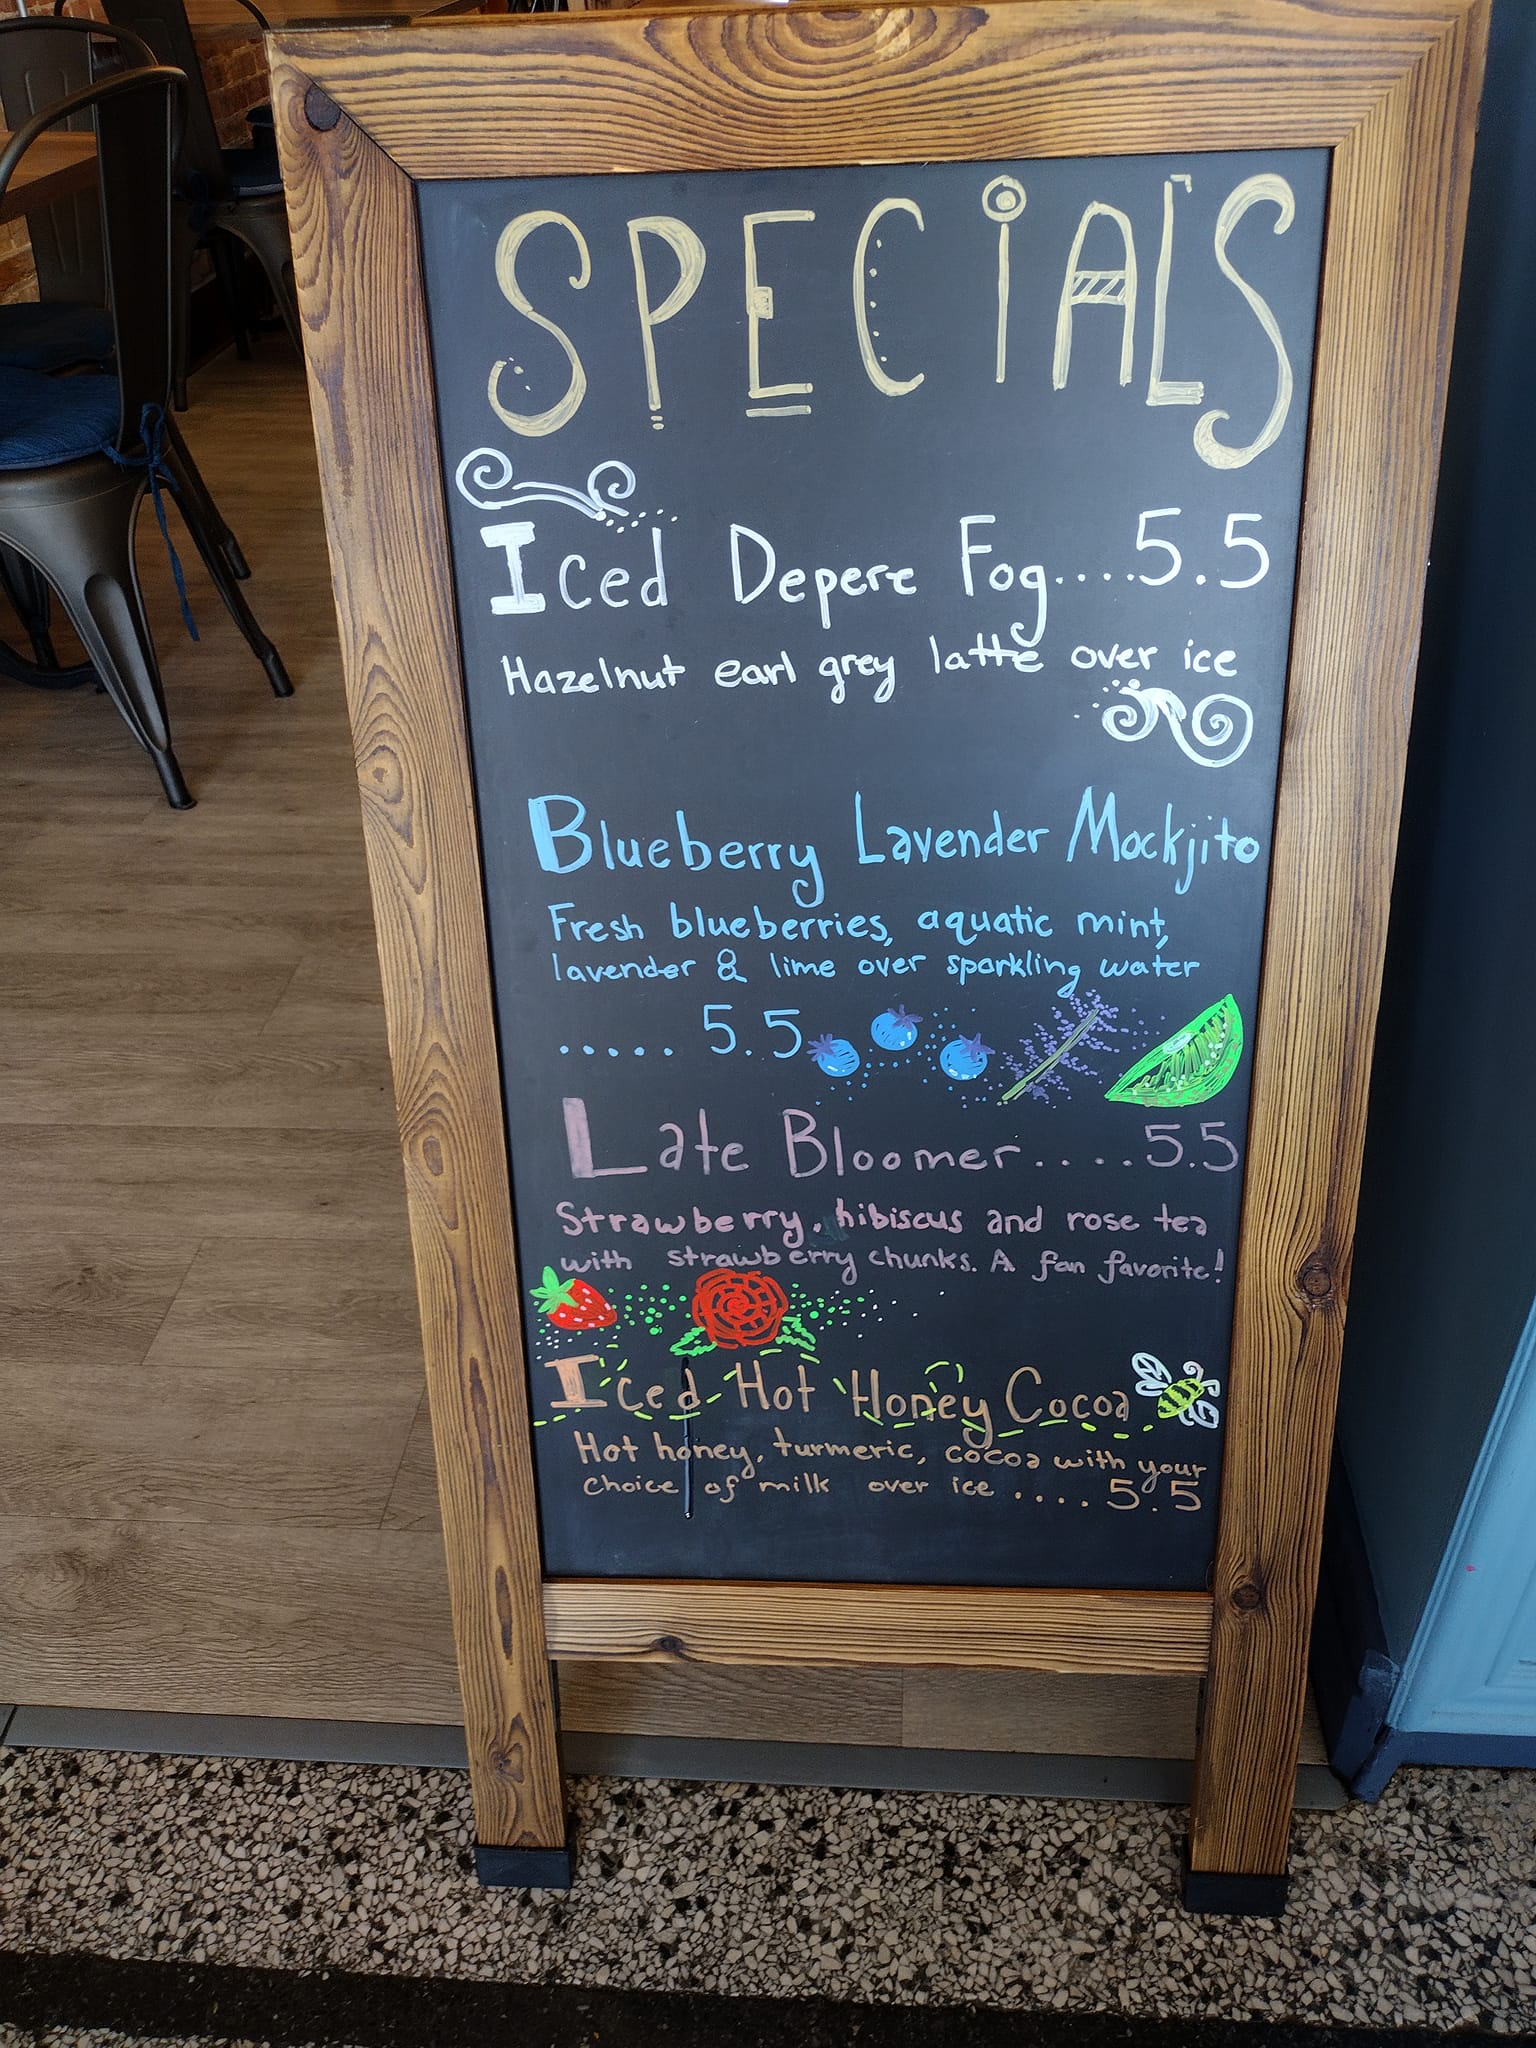 SPECiALS
Iced Depere Fog....5.5
Hazelnut earl grey latte over ice
Blueberry Lavender Mockjito
Fresh blueberries, aquatic mint,
lavender & lime over sparkling water
..... 5.5
Late Bloomer.....5.5
Strawberry, hibiscus and rose tea
with strawberry chunks. A fan favorite!
Iced Hot Honey Cocoa
Hot honey, turmeric, cocoa with your
choice of milk over ice .... 5.5